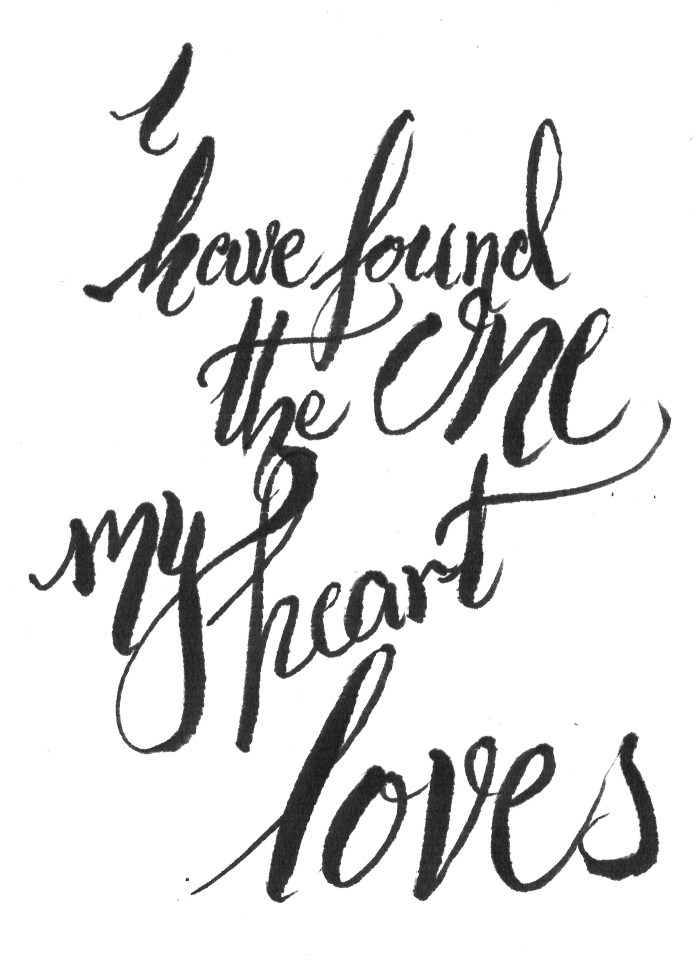 i
have found
the one
my heart
loves